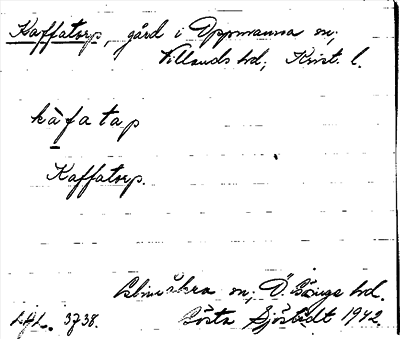 Kaffatorp, gård i Oppmanna sn,
Villands hd, Krist. l.
kàfatap
Kaffatorp.
Glimåkra sn, Ö. Göinge hd.
LAL. 3738. Gösta Sjöstedt 1942.